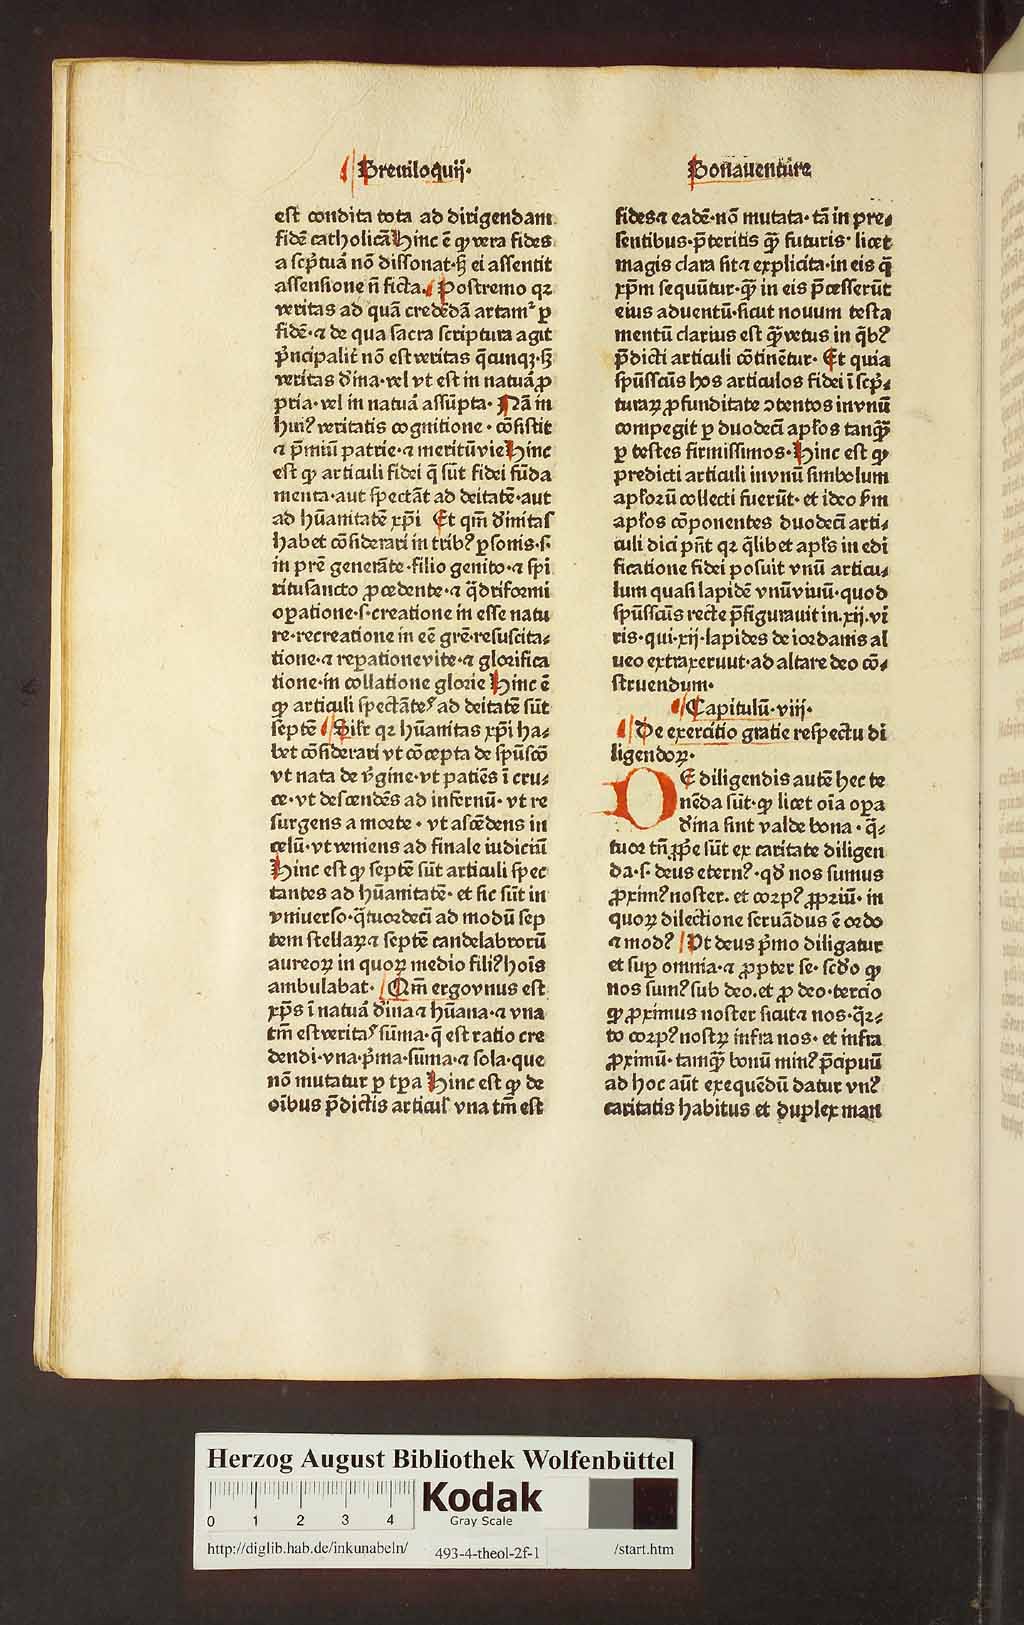 Breuiloquij·
Bonauenture
est condita tota ad dirigendam
fidē catholicā Hinc ē ꝙ vera fides
a scp̄tuā nō dissonat·sꝫ ei assentit
assensione n̄ ficta. Postremo qꝛ
veritas ad quā credēdā artamꝰ ꝑ
fidē·⁊ de qua sacra scriptura agit
pͥncipalit̄ nō est veritas q̄cunqꝫ·sꝫ
veritas dīna·vel vt est in natuā ꝓ
pria·vel in natuā assūpta· Nā in
huiꝰ veritatis cognitione·cōsistit
⁊ p̄miū patrie·⁊ meritū vie Hinc
est ꝙ articuli fidei q̄ sūt fidei fūda
menta·aut spectāt ad deitatē·aut
ad hūanitatē xp̄i Et qm̄ dīnitas
habet cōsiderari in tribꝰ ꝑsonis·s·
in pr̄e generāte·filio genito·⁊ spi
ritusancto ꝓcedente·⁊ q̄driformi
oꝑatione·s·creatione in esse natu
re·recreatione in eē gr̄e·resuscita⸗
tione·⁊ reꝑatione vite·⁊ glorifica
tione·in collatione glorie Hinc ē
ꝙ articuli spectātes ad deitatē sūt
septē Silr̄ qꝛ hūanitas xp̄i ha⸗
bet cōsiderari vt cōcepta de spūscō
vt nata de v̄gine·vt patiēs ī cru⸗
ce·vt descendēs ad infernū·vt re
surgens a morte·vt ascēdens in
celū·vt veniens ad finale iudiciū
Hinc est ꝙ septē sūt articuli spec
tantes ad hūanitatē·et sic sūt in
vniuerso·q̄tuordeci ad modū sep
tem stellaꝝ ⁊ septē candelabrorū
aureoꝝ in quoꝝ medio filiꝰ hoīs
ambulabat· Qm̄ ergo vnus est
xp̄s ī natuā dīna ⁊ hūana·⁊ vna
tm̄ est veritas sūma·q̄ est ratio cre
dendi·vna·pͥma·sūma·⁊ sola·que
nō mutatur ꝑ tꝑa Hinc est ꝙ de
oībus p̄dictis articul' vna tm̄ est
fides ⁊ eadē·nō mutata·tā in pre⸗
sentibus·p̄teritis qꝫ̄ futuris·licet
magis clara sit ⁊ explicita·in eis q̄
xp̄m sequūtur·qꝫ̄ in eis p̄cesserūt
eius aduentū·sicut nouum testa
mentū clarius est qꝫ̄ vetus in qͥbꝰ
p̄dicti articuli cōtinētur· Et quia
spūsscūs hos articulos fidei ī scpͥ⸗
turaꝝ ꝓfunditate ↄtentos in vnū
compegit ꝑ duodecī apl̄os tanqꝫ̄
ꝑ testes firmissimos· Hinc est ꝙ
predicti articuli in vnū simbolum
apl̄orū collecti fuerūt·et ideo sͨm
apl̄os cōponentes duodecī arti⸗
culi dici pn̄t qꝛ q̄libet apl̄s in edi
ficatione fidei posuit vnū articu⸗
lum quasi lapidē vnū viuū·quod
spūsscūs recte p̄figurauit in.xij.vi
ris·qui·xij·lapides de iordanis al
ueo extraxeruut·ad altare deo cō⸗
struendum·
Capitulū·viij·
De exercitio gratie respectu di
ligendoꝝ·
DE diligendis autē hec te
nēda sūt·ꝙ licet oīa oꝑa
dīna sint valde bona·q̄⸗
tuor tn̄ ꝓpͥe sūt ex caritate diligen
da·s·deus eternꝰ·qd̄ nos sumus
ꝓximꝰ noster·et corpꝰ ꝓpriū·in
quoꝝ dilectione seruādus ē ordo
⁊ modꝰ Vt deus pͥmo diligatur
et suꝑ omnia·⁊ ꝓpter se·scd̄o ꝙ
nos sumꝰ sub deo.et ꝓ deo·tercio
ꝙ ꝓximus noster sicut ⁊ nos·q̄r⸗
to corpꝰ nostꝝ infra nos·et infra
ꝓximū·tamqꝫ̄ bonū minꝰ p̄cipuū
ad hoc aūt exequēdū datur vnꝰ
caritatis habitus et duplex man
Herzog August Bibliothek Wolfenbüttel
0 1 2 3 4
Kodak
Gray Scale
http://diglib.hab.de/inkunabeln/ 493-4-theol-2f-1 /start.htm